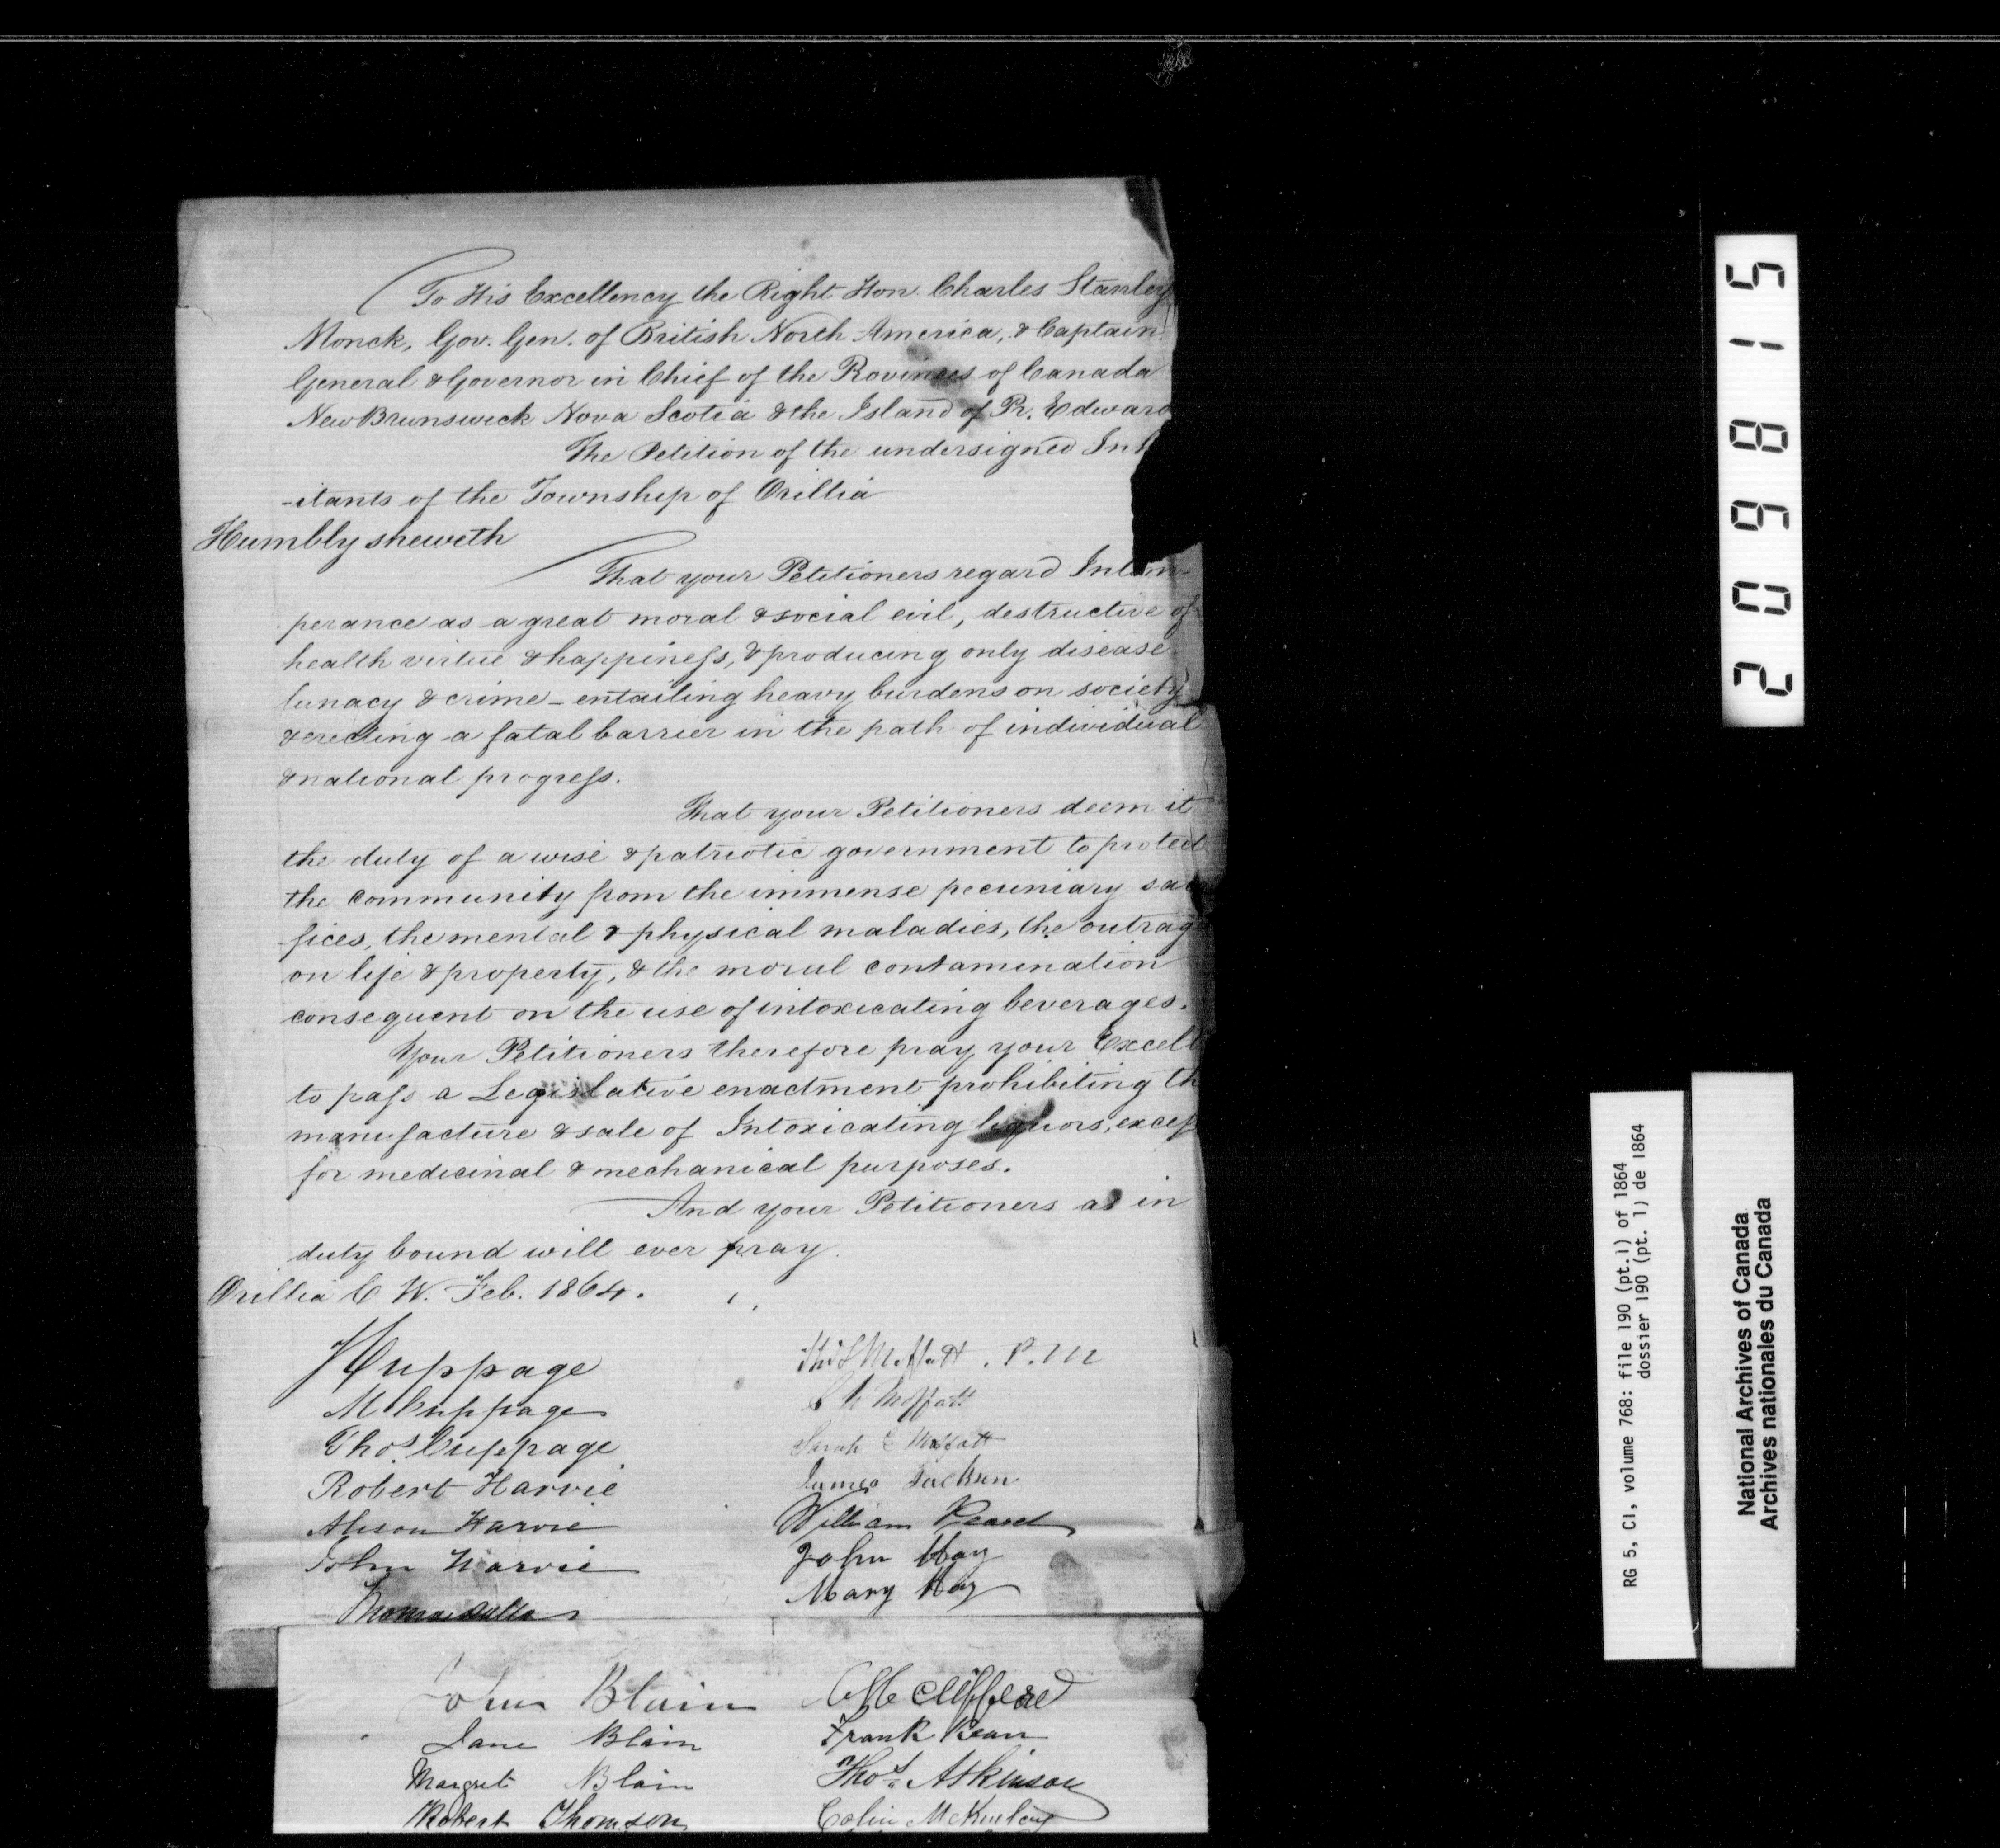 To His Excellency the Right Hon. Charles Stanley
Monck, Gov. Gen. of British North America, & Captain
General & Governor in Chief of the Provinces of Canada
New Brunswick Nova Scotia & the Island of Pr. Edward
The Petition of the undersigned Inh
-itants of the Township of Orillia
Humbly sheweth
That your Petitioners regard Intem-
perance as a great moral & social evil, destructive of
health virtue & happiness, & producing only disease
lunacy & crime - entailing heavy burdens on society
& erecting a fatal barrier in the path of individual
& national progress.
That your Petitioners deem it
the duty of a wise & patriotic government to protect
the community from the immense pecuniary sacri
-fices, the mental & physical maladies, the outrage
on life & property, & the moral contamination
consequent on the use of intoxicating beverages.
Your Petitioners therefore pray your Excell
to pass a Legislative enactment prohibiting th
manufacture & sale of Intoxicating liquors, excep
for medicinal & mechanical purposes.
And your Petitioners as in
duty bound will ever pray.
Orillia C W. Feb. 1864.
Cuppage
M Cuppage
Thos. Cuppage
Robert Harvie
Alison Harvie
John Harvie
Thomas
Moffatt . P. M
Moffatt
Sarah E Moffatt
James Jackson
William
John Hay
Mary Hay
John Blain
Jane Blain
Margret Blain
Robert Thomson
Frank Kean
Thos. Atkinson
Colin McKinley
209815
RG 5, C1, volume 768: file 190 (pt.1) of 1864
dossier 190 (pt. 1) de 1864
National Archives of Canada
Archives nationales du Canada